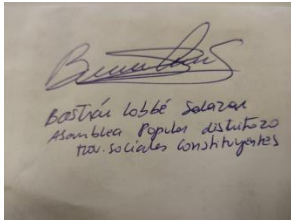 Bastián Labbé Salazar
Asamblea Popular distrito 20
mov. sociales constituyentes